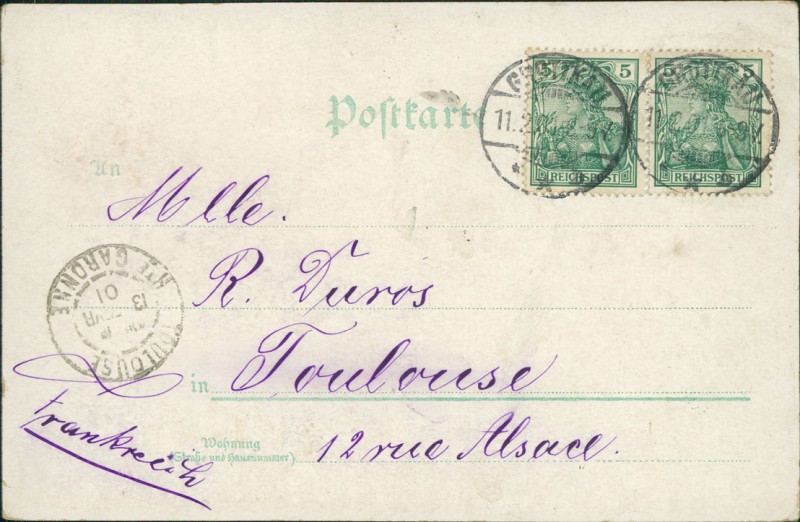 5 5
Postkarte
11.2
REICHSPOST REICHSPOST
An
Mlle.
R. Duros
TOULOUSE
HTE GARONNE
13
01
in Toulouse
Frankreich
Wohnung
(Straße und Hausnummer)
12 rue Alsace.